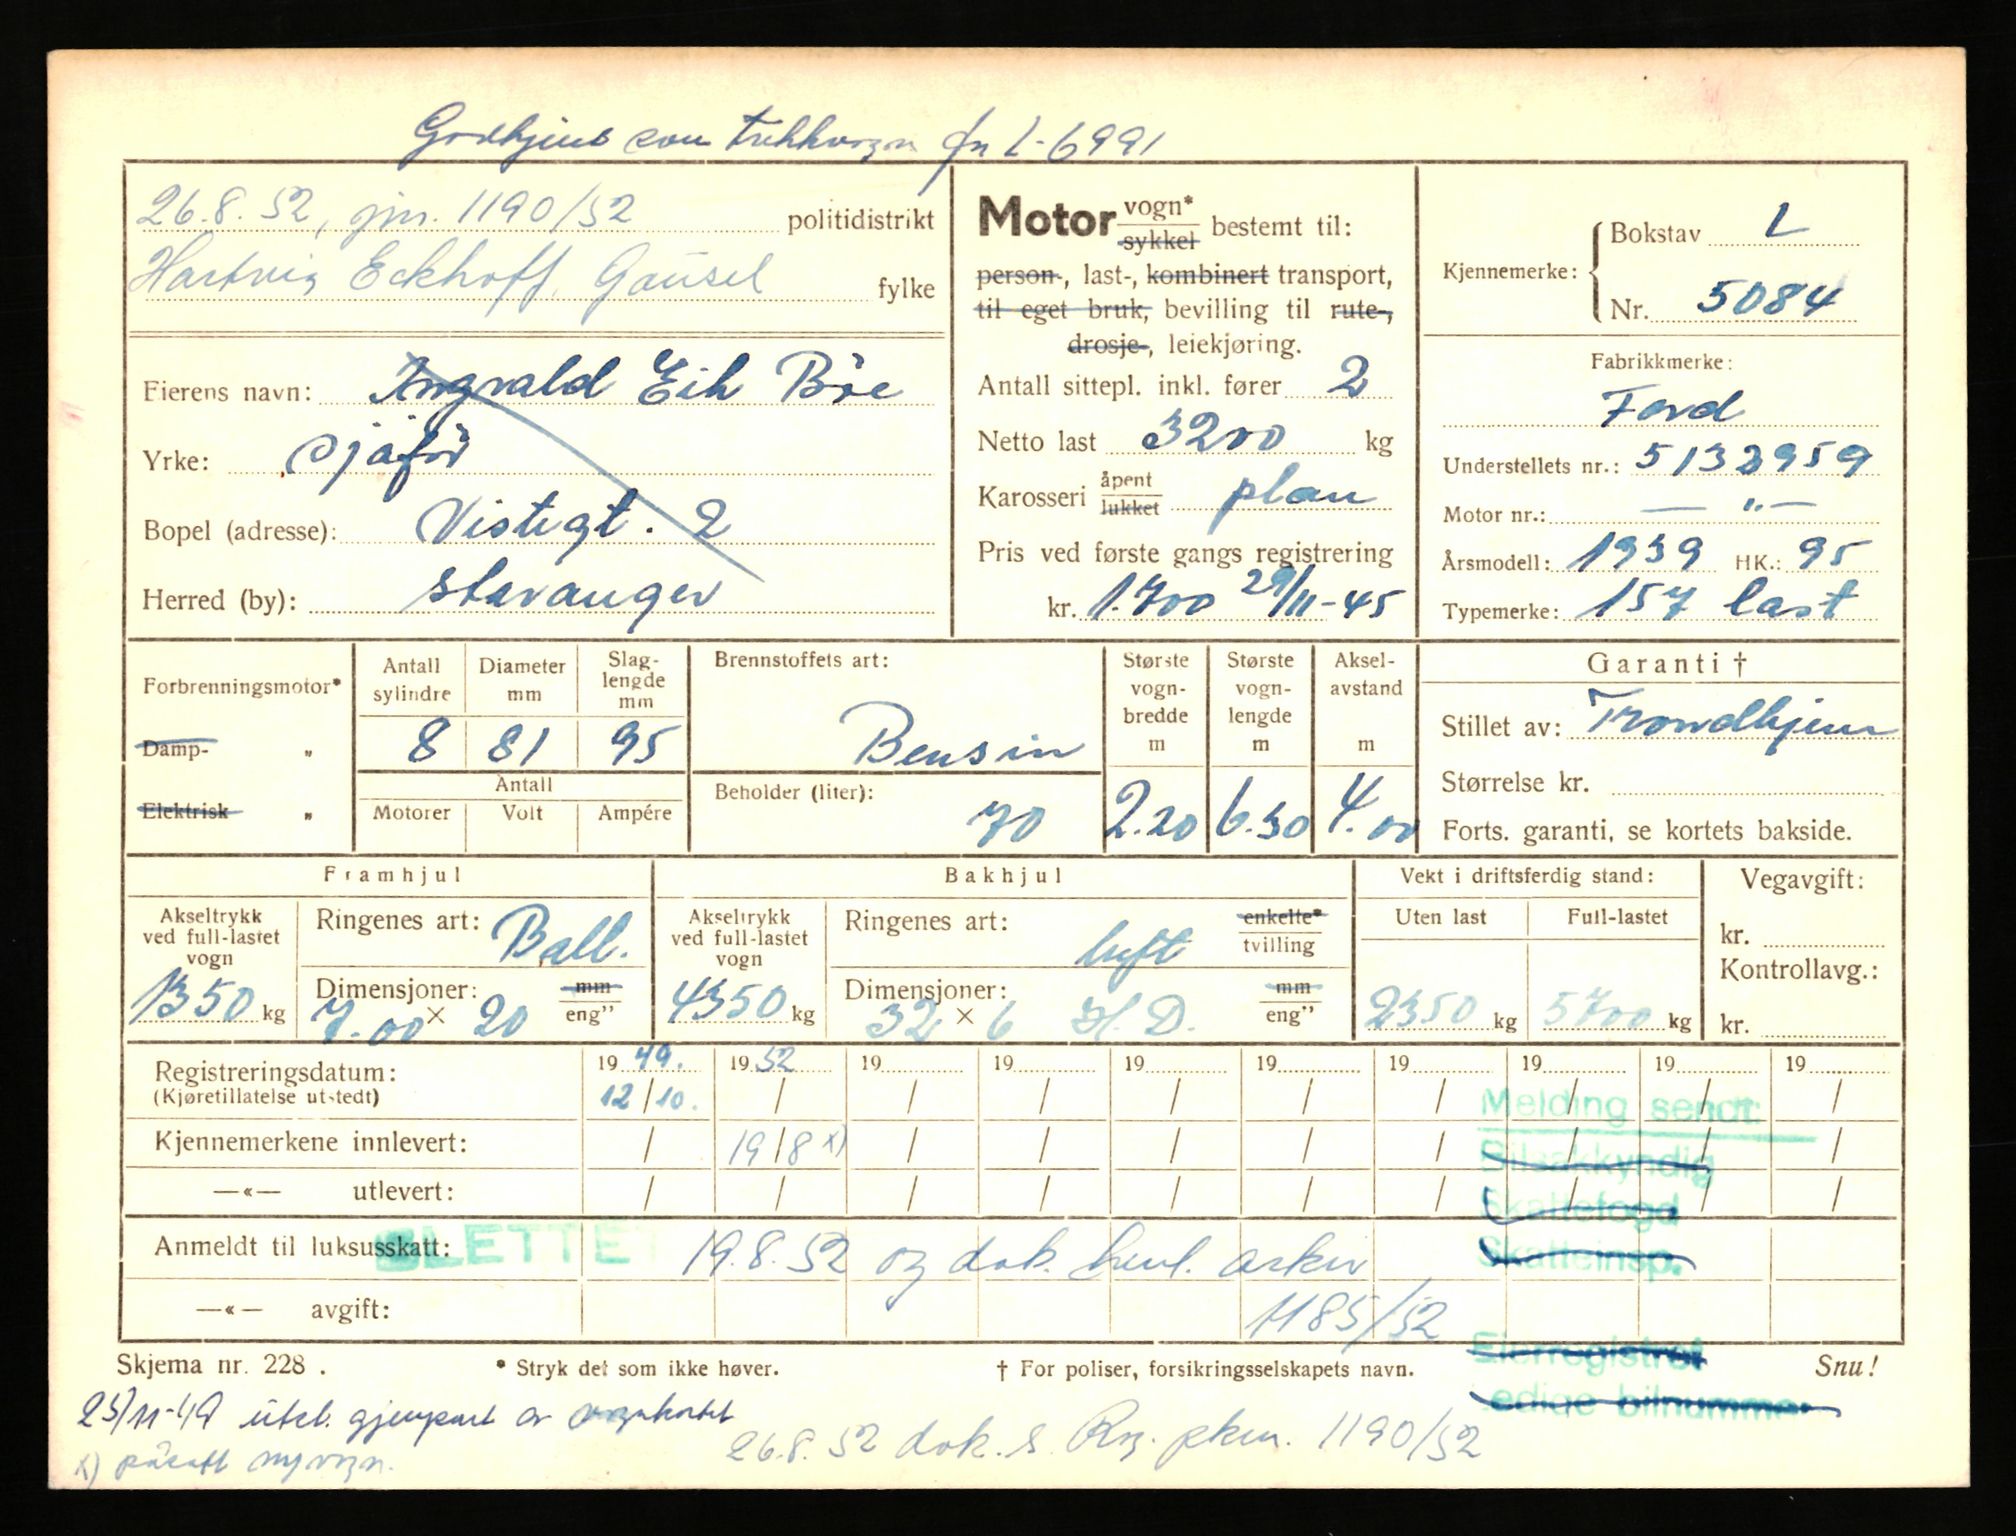 Godkjent som trekkvogn for L-6991
26.8.52, jnr. 1190/52 politidistrikt
Hartvig Eckhoff, Gausel fylke
Eierens navn: Ingvald Eik Bøe
Yrke: sjåfør
Bopel (adresse): Vistegt. 2
Herred (by): Stavanger
Motor vogn* sykkel bestemt til:
person-, last-, kombinert transport,
til eget bruk, bevilling til rute-,
drosje-, leiekjøring.
Antall sittepl. inkl. fører 2
Netto last 3200 kg
Karosseri åpent lukket plan
Pris ved første gangs registrering
kr. 1.700 29/11-45
Kjennemerke: Bokstav L
Nr. 5084
Fabrikkmerke:
Ford
Understellets nr.: 5132959
Motor nr.: — „ —
Årsmodell: 1939 HK.: 95
Typemerke: 157 last
Forbrenningsmotor*
Damp- „
Elektrisk „
Antall sylindre Diameter mm Slaglengde mm
8 81 95
Antall
Motorer Volt Ampére
Brennstoffets art:
Bensin
Beholder (liter):
70
Største vogn-bredde m Største vogn-lengde m Aksel-avstand m
2.20 6.30 4.00
Garanti †
Stillet av: Trondhjem
Størrelse kr.
Forts. garanti, se kortets bakside.
Framhjul
Akseltrykk ved full-lastet vogn
1350 kg
Ringenes art: Ball.
Dimensjoner: mm
7.00 × 20 eng"
Bakhjul
Akseltrykk ved full-lastet vogn
4350 kg
Ringenes art: luft enkelte* tvilling
Dimensjoner: mm
32 × 6 H.D. eng"
Vekt i driftsferdig stand:
Uten last Full-lastet
2350 kg 5700 kg
Vegavgift:
kr.
Kontrollavg.:
kr.
Registreringsdatum: 19 49. 19 52 19 19 19 19 19 19 19 19
(Kjøretillatelse utstedt) 12/10. / / / / / / / / /
Melding sendt:
Kjennemerkene innlevert: / 19/8 x) / / / / / / / /
Bilsakkyndig
—«— utlevert: / / / / / / / / / /
Skattefogd
Anmeldt til luksusskatt: SLETTET 19.8.52 og dok. henl. arkiv
Skatteinsp.
—«— avgift: 1185/52
Eierregistret
Skjema nr. 228. * Stryk det som ikke høver. † For poliser, forsikringsselskapets navn. Snu!
Ledige bilnummer
25/11-49 utst. gjenpart av vognkortet
26.8.52 dok. s. Rog. pkm. 1190/52
x) påsatt ny vogn.